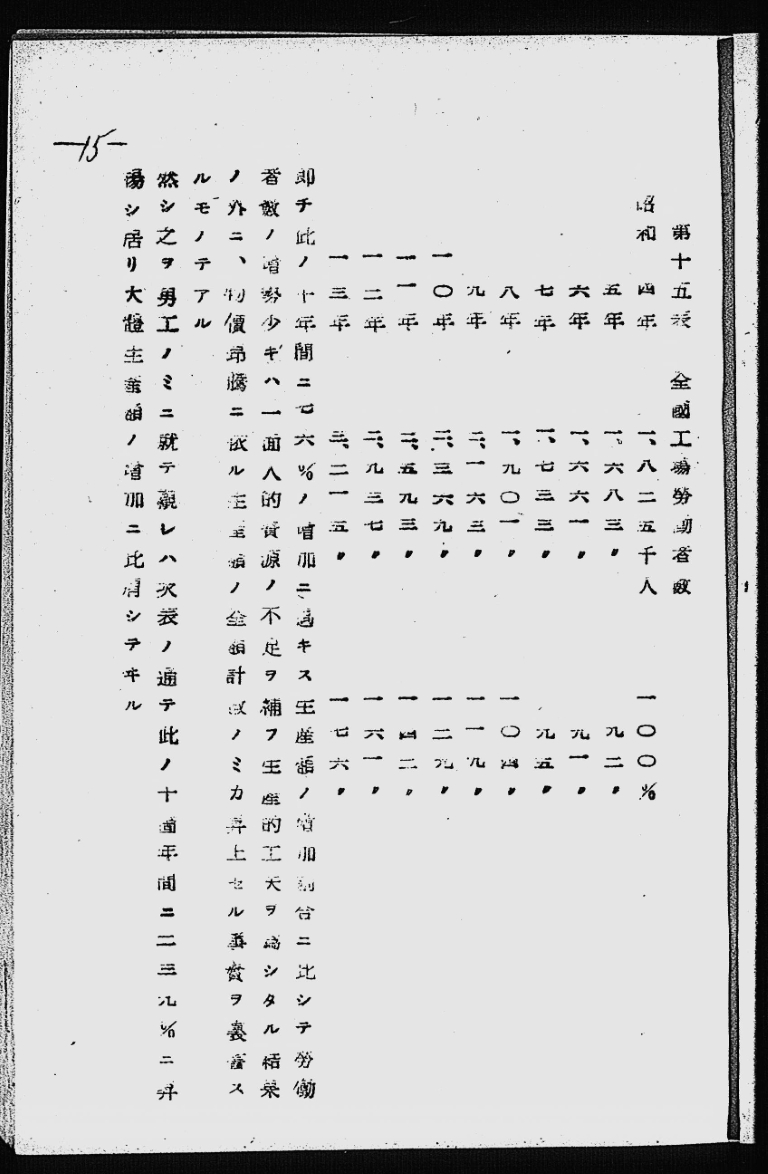 —15—
第十五表 全國工場勞働者數
昭和四年 一、八二五千人 一〇〇%
五年 一、六八三〃 九二〃
六年 一、六六一〃 九一〃
七年 一、七三三〃 九五〃
八年 一、九〇一〃 一〇四〃
九年 二、一六三〃 一一九〃
一〇年 二、三六九〃 一二九〃
一一年 二、五九三〃 一四二〃
一二年 二、九三七〃 一六一〃
一三年 三、二一五〃 一七六〃
即チ此ノ十年間ニ七六%ノ增加ニ過キス生產額ノ增加割合ニ比シテ勞働
者數ノ增勢少キハ一面人的資源ノ不足ヲ補フ生產的工夫ヲ爲シタル結果
ノ外ニ、物價昂騰ニ依ル生產額ノ金額計數ノミカ昇上セル事實ヲ裏書ス
ルモノテアル
然シ之ヲ男工ノミニ就テ觀レハ次表ノ通テ此ノ十箇年間ニ二三九%ニ昇
騰シ居リ大體生產額ノ增加ニ比肩シテヰル